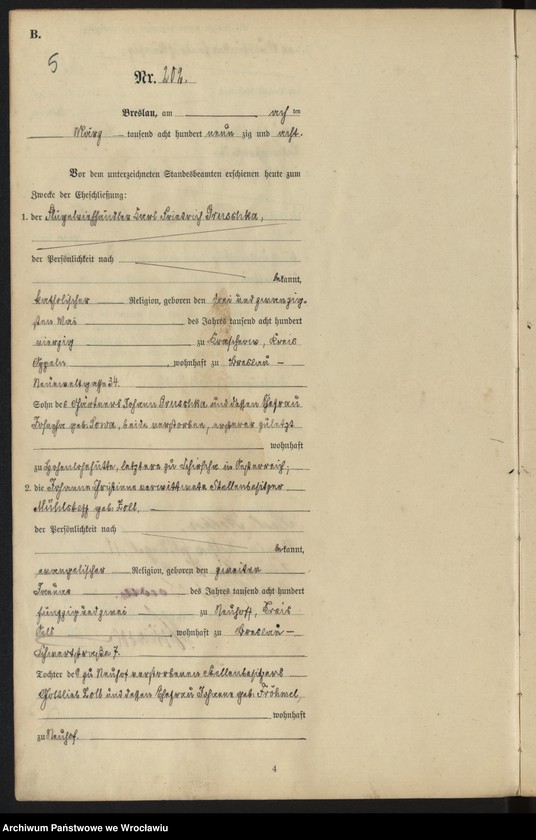 B.
5
Nr. 202.
Breslau, am acht ten
März tausend acht hundert neun zig und acht.
Vor dem unterzeichneten Standesbeamten erschienen heute zum
Zwecke der Eheschließung:
1. der Flügelviehhändler Carl Friedrich Pruschka,
der Persönlichkeit nach
bekannt,
katholischer Religion, geboren den drei und zwanzig-
sten Mai des Jahres tausend acht hundert
vierzig zu Kraschow, Kreis
Oppeln, wohnhaft zu Breslau –
Neueweltgasse 34.
Sohn des Gärtners Johann Pruschka und dessen Ehefrau
Josepha geb. Sowa, beide verstorben, ersterer zuletzt
wohnhaft
zu Hohenlohehütte, letztere zu in Oesterreich;
2. die Johanne Christiane verwittwete Stellenbesitzer
geb. Zolb.
der Persönlichkeit nach
bekannt,
evangelischer Religion, geboren den zweiten
Januar des Jahres tausend acht hundert
fünfzig und zwei zu Neuhoff, Kreis
Oels, wohnhaft zu Breslau –
Schwertstraße 7.
Tochter des zu Neuhof verstorbenen Stellenbesitzers
Gottlieb Zolb und dessen Ehefrau Johanne geb. Fröhmel,
wohnhaft
zu Neuhof.
4
Archiwum Państwowe we Wrocławiu